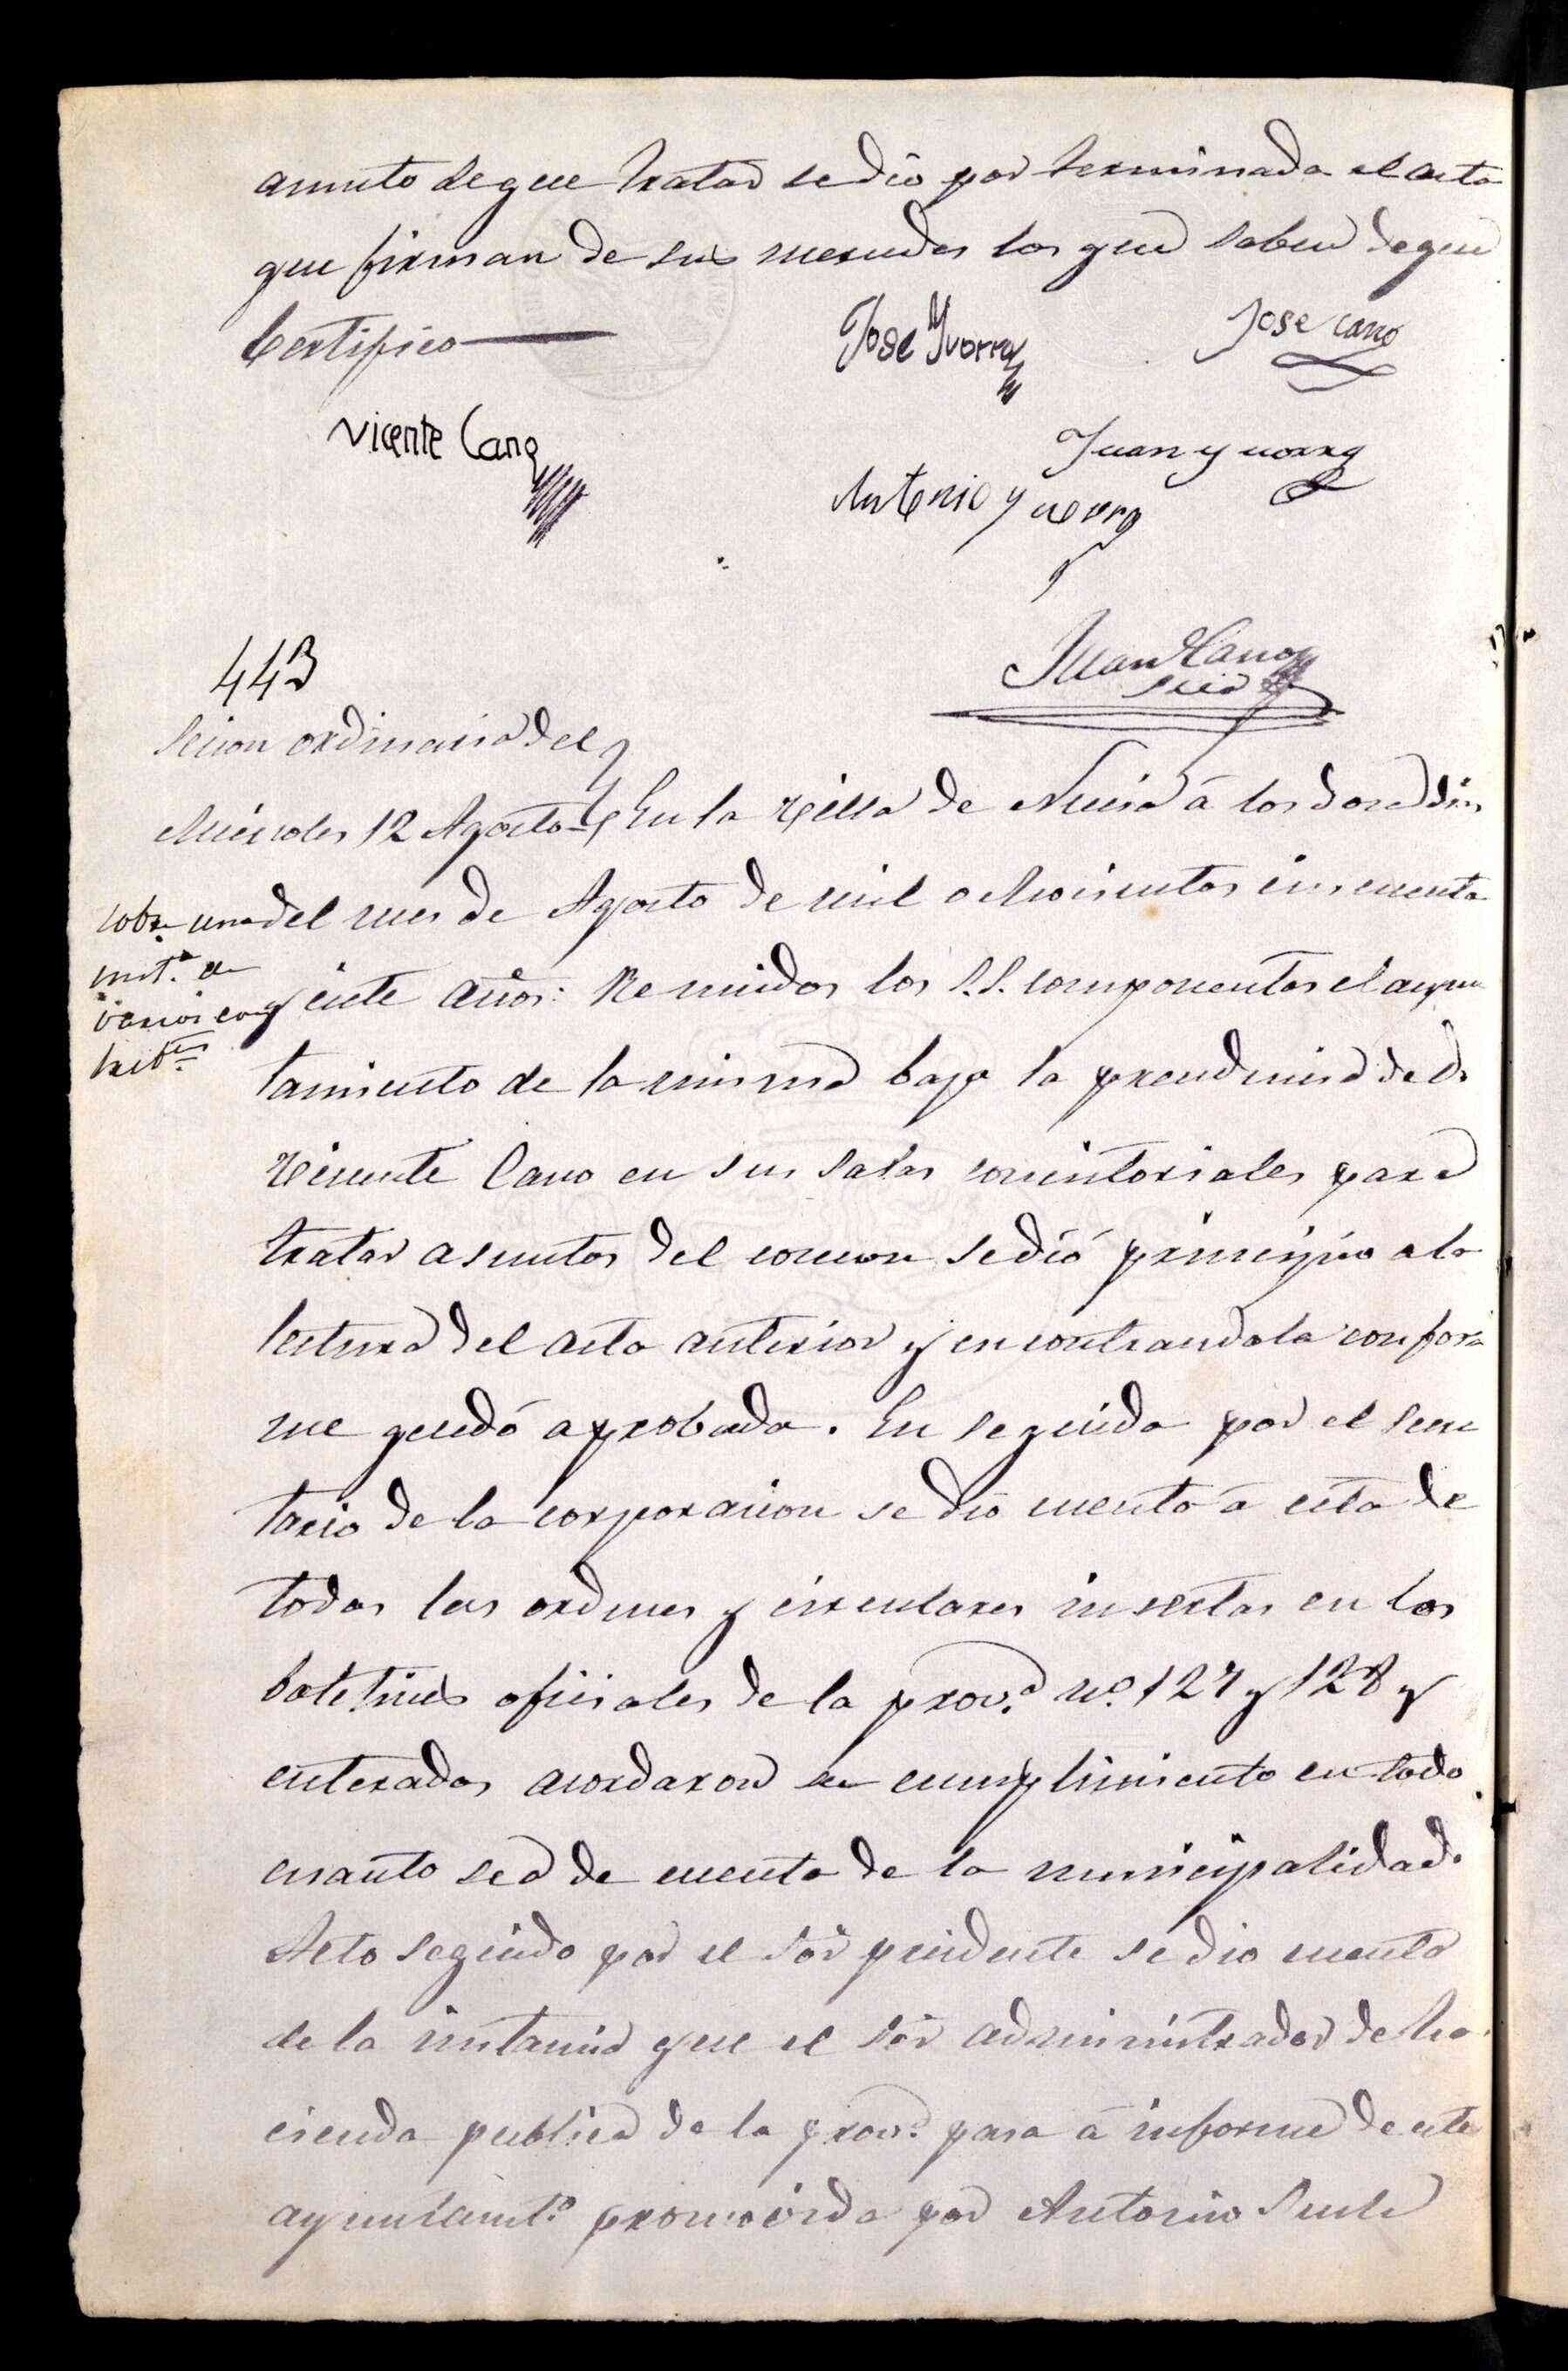 asunto de que tratar se dio por terminada el acta
que firman de sus mercedes los que saben de que
Certifico
Jose Yvorra
Jose cano
Vicente Cano
Juan yvorra
Antonio yvorra
Juan Cano
Srio
443
Secion ordinaria del
Miercoles 12 Agosto
sobre una
inst.ª de
varios con
trib.es
En la Villa de Nucia á los doce dias
del mes de Agosto de mil ochocientos cincuenta
y siete años: Reunidos los S.S. componentes el ayun
tamiento de la misma bajo la precidencia de D.
Vicente Cano en sus salas concistoriales para
tratar asuntos del comun se dió principio a la
lectura del acta anterior y encontrandola confor
me quedó aprobada. En seguida por el secre
tario de la corporacion se dio cuenta á esta de
todas las ordenes y circulares insertas en los
boletines oficiales de la prov.ª nº 127 y 128 y
enterados acordaron su cumplimiento en todo
cuanto sea de cuenta de la municipalidad.
Acto seguido por el Sor precidente se dio cuenta
de la instancia que el Sor administrador de ha
cienda publica de la prov.ª pasa á informe de este
ayuntamt.º promovida por Antonio